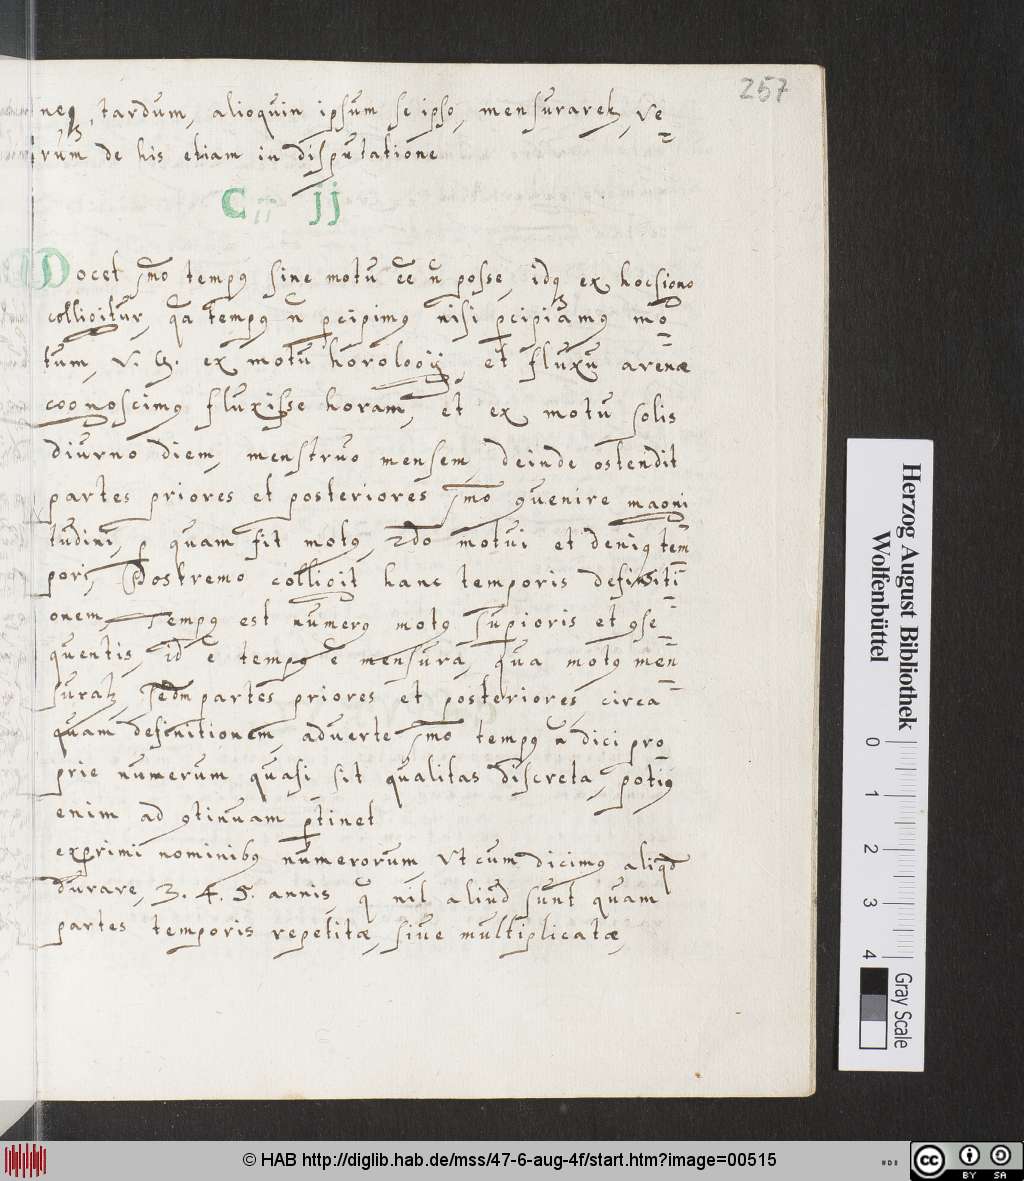 257
neq, tardum, alioquin ipsum se ipso, mensuraretz, ve=
rum de his etiam in disputatione
C jj
Docet mo tempq sine motu ee n posse, idq ex hoc signo
colligitur, qa tempq n pcipimq nisi pcipiamq mo=
tum, v. g. ex motu horologij, et fluxu arenæ
cognoscimq fluxisse horam, et ex motu solis
diurno diem, menstruo mensem, deinde ostendit
partes priores et posteriores mo 9uenire magni
tudini, p quam fit motq, 2do motui et deniq tem=
pori, Postremo colligit hanc temporis definiti=
onem, Tempq est numerq motq supioris et 9se=
quentis, id e tempq e mensura, qua motq men=
suratz, sedm partes priores et posteriores, circa
quam definitionem, aduerte mo tempq n dici pro
prie numerum quasi sit qualitas discreta, potiq
enim ad 9tinuam ptinet
exprimi nominibq numerorum, Vt cum dicimq aliqd
durare, 3. 4. 5. annis, q nil aliud sunt quam
partes temporis repetitæ, siue multiplicatæ,
Herzog August Bibliothek
Wolfenbüttel
0 1 2 3 4
Gray Scale
© HAB http://diglib.hab.de/mss/47-6-aug-4f/start.htm?image=00515
cc BY SA